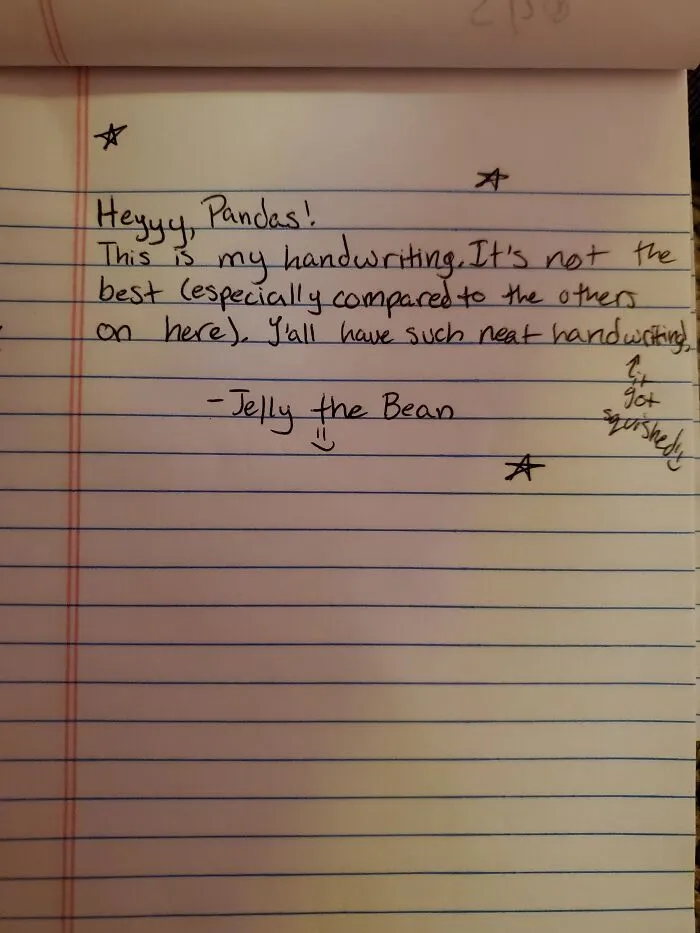 Heyyy, Pandas!
This is my handwriting. It's not the
best (especially compared to the others
on here). Y'all have such neat handwriting,
↑
it
got
squished :)
- Jelly the Bean
:)